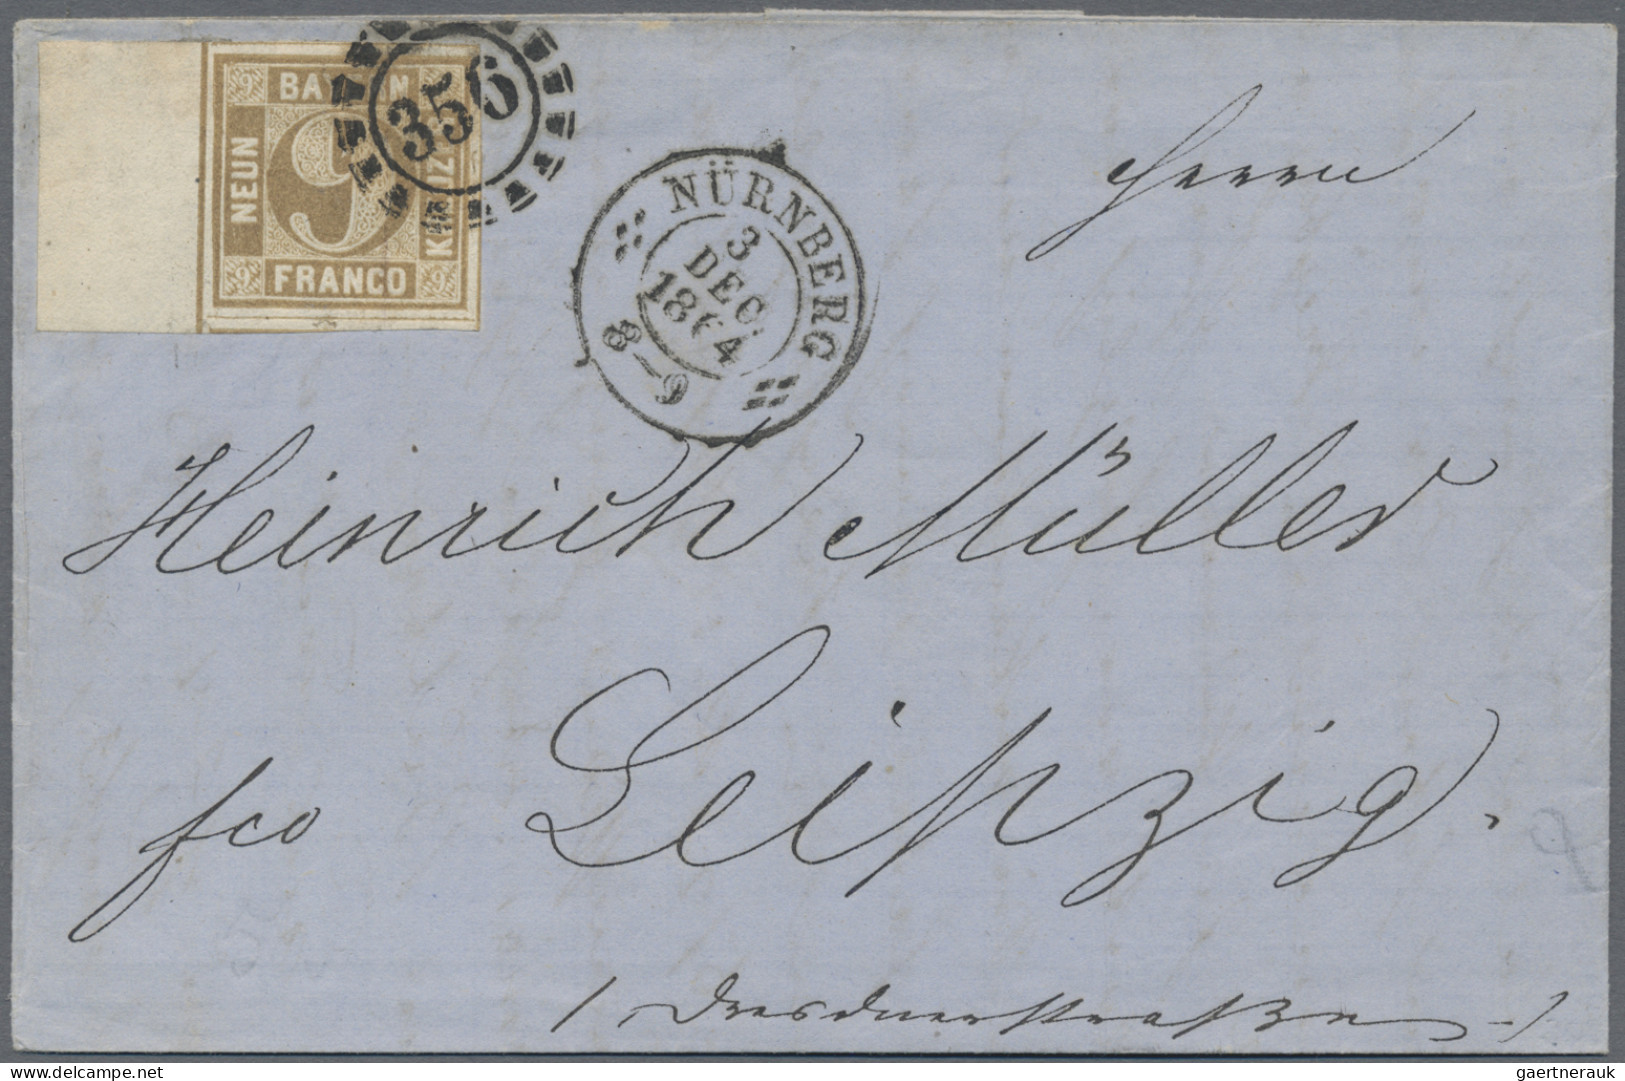 9 BAYERN
NEUN
KREUZER
9 FRANCO 9
356
NÜRNBERG
3
DEC.
1864
8—9
Herrn
Heinrich Müller
fco Leipzig.
/ Dresdnerstraße /
gaertnerauk